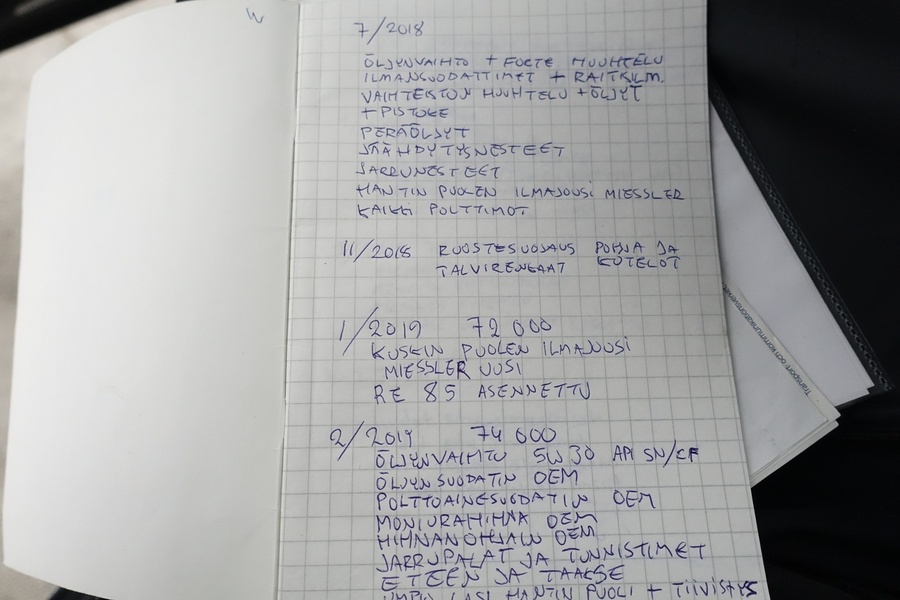 7/2018
ÖLJYNVAIHTO + FORTE HUUHTELU
ILMANSUODATTIMET + RAITISILM.
VAIHTEISTON HUUHTELU + ÖLJYT
+ PISTOKE
PERÄÖLJYT
JÄÄHDYTYSNESTEET
JARRUNESTEET
HANTIN PUOLEN ILMAJOUSI MIESSLER
KAIKKI POLTTIMOT
11/2018 RUOSTESUOJAUS POHJA JA
TALVIRENKAAT KOTELOT
1/2019 72 000
KUSKIN PUOLEN ILMAJOUSI
MIESSLER UUSI
RE 85 ASENNETTU
2/2019 74 000
ÖLJYNVAIHTO 5W30 API SN/CF
ÖLJYNSUODATIN OEM
POLTTOAINESUODATIN OEM
MONIURAHIHNA OEM
HIHNANOHJAIN OEM
JARRUPALAT JA TUNNISTIMET
ETEEN JA TAAKSE
UMPIO LASI HANTIN PUOLI + TIIVISTYS
Transport- och kommunikationsverket